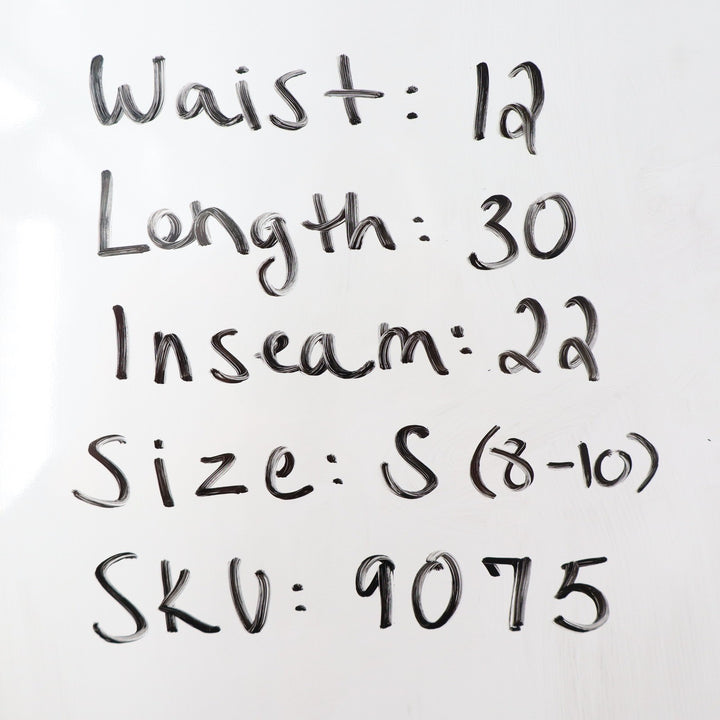 Waist: 12
Length: 30
Inseam: 22
Size: S (8-10)
SKU: 9075